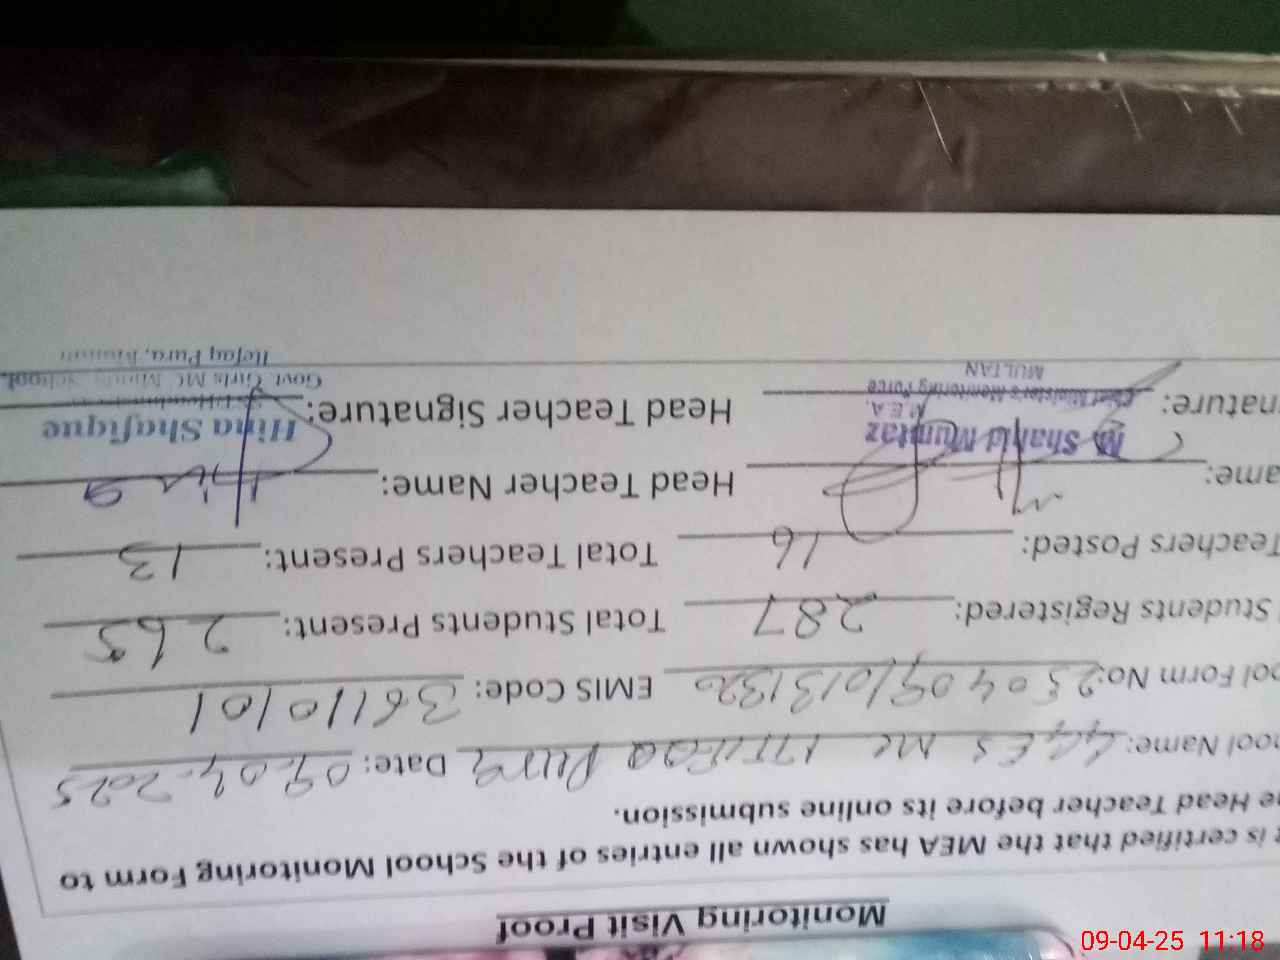 Monitoring Visit Proof
is certified that the MEA has shown all entries of the School Monitoring Form to
Head Teacher before its online submission.
ool Name: GGES MC Date: 09.04.2025
ool Form No: EMIS Code: 36110101
Students Registered: 287 Total Students Present: 265
Teachers Posted: 16 Total Teachers Present: 13
ame: Head Teacher Name: Hina
nature: M. Shahid Mumtaz Head Teacher Signature: Hina Shafique
M.E.A.
Chief Minister's Monitoring Force
MULTAN
Govt. Girls MC School
Pura, Multan
09-04-25 11:18